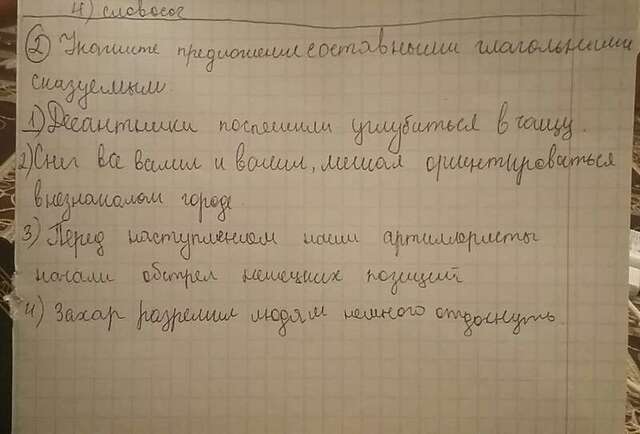 4) словосоч
2 Укажите предложения с составными глагольными
сказуемыми.
1) Десантники поспешили углубиться в чащу.
2) Снег все валил и валил, мешая ориентироваться
в незнакомом городе.
3) Перед наступлением наши артиллеристы
начали обстрел немецких позиций
4) Захар разрешил людям немного отдохнуть.